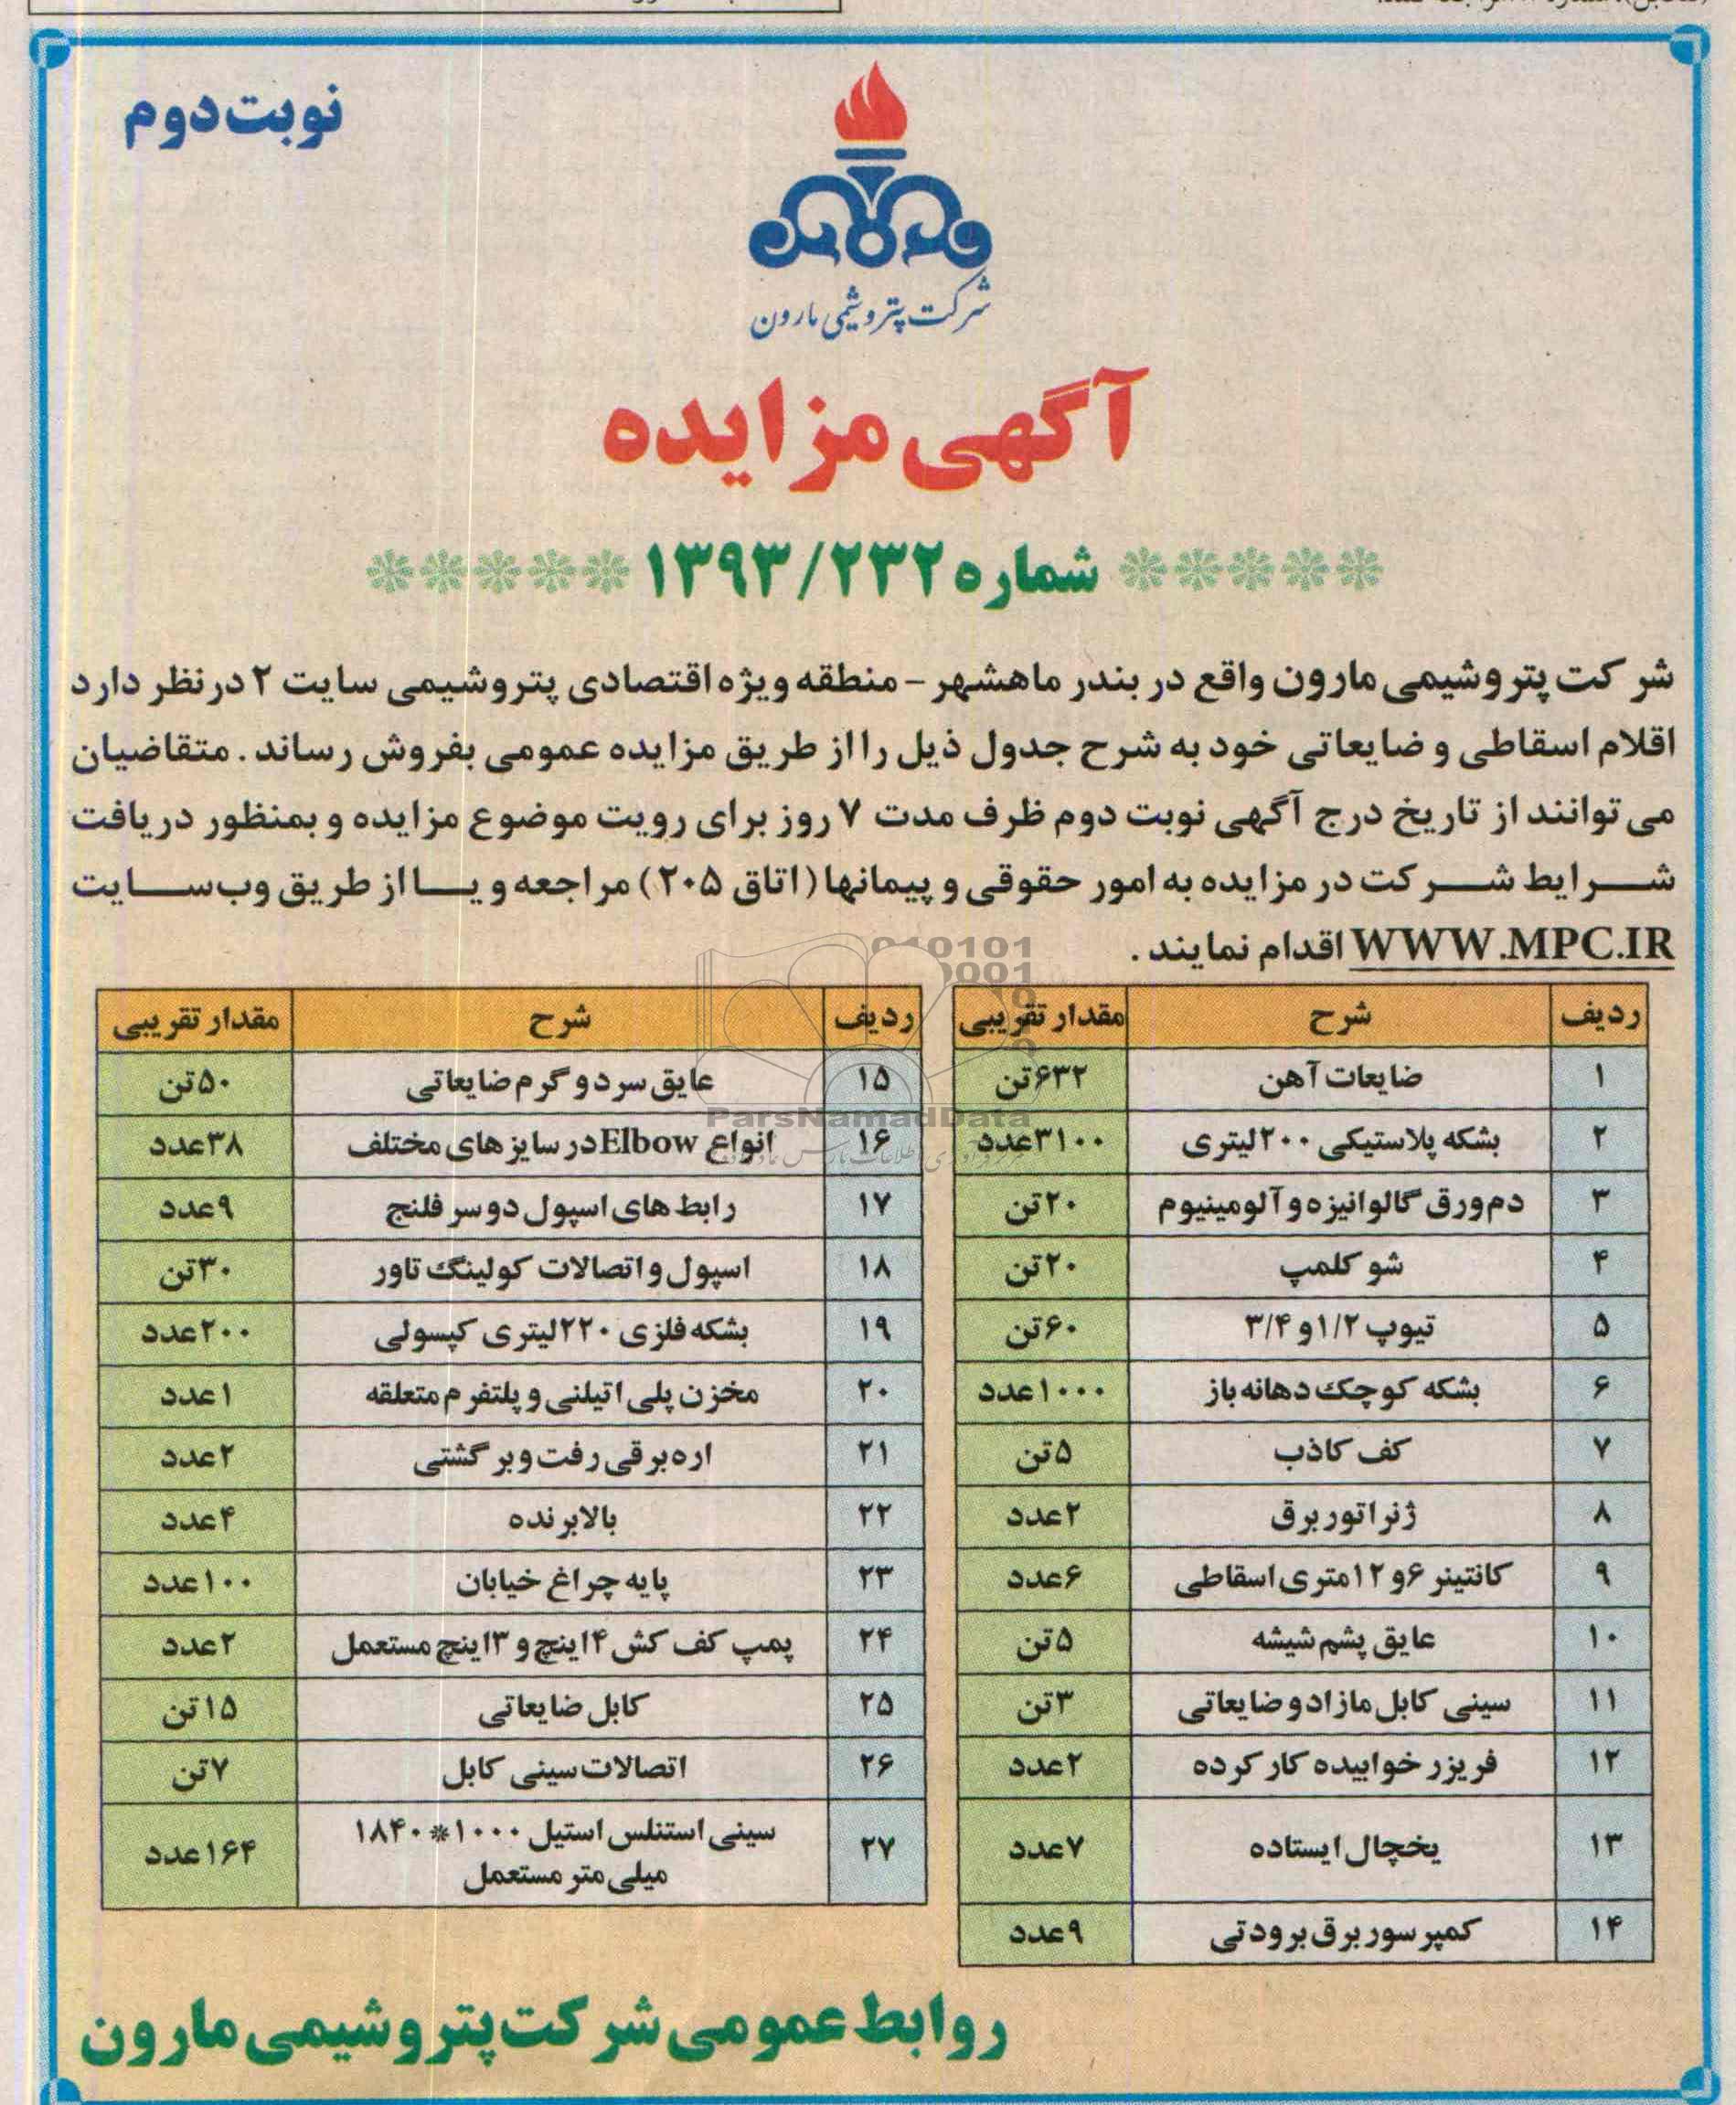 نوبت دوم
شرکت پتروشیمی مارون
آگهی مزایده
شماره ۱۳۹۳/۲۳۲
شرکت پتروشیمی مارون واقع در بندر ماهشهر - منطقه ویژه اقتصادی پتروشیمی سایت ۲ در نظر دارد
اقلام اسقاطی و ضایعاتی خود به شرح جدول ذیل را از طریق مزایده عمومی بفروش رساند. متقاضیان
می توانند از تاریخ درج آگهی نوبت دوم ظرف مدت ۷ روز برای رویت موضوع مزایده و بمنظور دریافت
شرایط شرکت در مزایده به امور حقوقی و پیمانها (اتاق ۲۰۵) مراجعه و یا از طریق وب سایت
WWW.MPC.IR اقدام نمایند.
ردیف شرح مقدار تقریبی
۱ ضایعات آهن ۶۳۲ تن
۲ بشکه پلاستیکی ۲۰۰ لیتری ۳۱۰۰ عدد
۳ دم ورق گالوانیزه و آلومینیوم ۲۰ تن
۴ شو کلمپ ۲۰ تن
۵ تیوپ ۱/۲ و ۳/۴ ۶۰ تن
۶ بشکه کوچک دهانه باز ۱۰۰۰ عدد
۷ کف کاذب ۵ تن
۸ ژنراتور برق ۲ عدد
۹ کانتینر ۶ و ۱۲ متری اسقاطی ۶ عدد
۱۰ عایق پشم شیشه ۵ تن
۱۱ سینی کابل مازاد و ضایعاتی ۳ تن
۱۲ فریزر خوابیده کار کرده ۲ عدد
۱۳ یخچال ایستاده ۷ عدد
۱۴ کمپرسور برق برودتی ۹ عدد
ردیف شرح مقدار تقریبی
۱۵ عایق سرد و گرم ضایعاتی ۵۰ تن
۱۶ انواع Elbow در سایزهای مختلف ۳۸ عدد
۱۷ رابط های اسپول دو سر فلنج ۹ عدد
۱۸ اسپول و اتصالات کولینگ تاور ۳۰ تن
۱۹ بشکه فلزی ۲۲۰ لیتری کپسولی ۲۰۰ عدد
۲۰ مخزن پلی اتیلنی و پلتفرم متعلقه ۱ عدد
۲۱ اره برقی رفت و برگشتی ۲ عدد
۲۲ بالابرنده ۴ عدد
۲۳ پایه چراغ خیابان ۱۰۰ عدد
۲۴ پمپ کف کش ۴ اینچ و ۳ اینچ مستعمل ۲ عدد
۲۵ کابل ضایعاتی ۱۵ تن
۲۶ اتصالات سینی کابل ۷ تن
۲۷ سینی استنلس استیل ۱۰۰۰*۱۸۴۰ ۱۶۴ عدد
میلی متر مستعمل
ParsNamadData
روابط عمومی شرکت پتروشیمی مارون